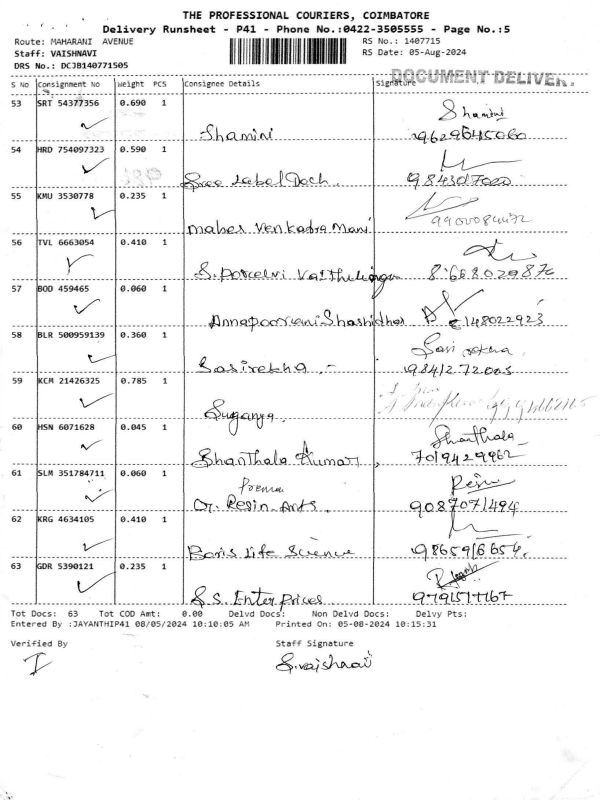 THE PROFESSIONAL COURIERS, COIMBATORE
Delivery Runsheet - P41 - Phone No.:0422-3505555 - Page No.:5
Route: MAHARANI AVENUE RS No.: 1407715
Staff: VAISHNAVI RS Date: 05-Aug-2024
DRS No.: DCJB140771505
DOCUMENT DELIVER.
S No Consignment No Weight PCS Consignee Details Signature
53 SRT 54377356 0.690 1 Shamini
Shamini 9629645060
54 HRD 754097323 0.590 1
55 KMU 3530778 0.235 1
Mahes Venkadra Mani 9900084472
56 TVL 6663054 0.410 1
57 BOD 459465 0.060 1
Annapoorani Shashidhar
58 BLR 500959139 0.360 1 Sasi rekha
Sasirekha - 9841272005
59 KCM 21426325 0.785 1
Suganya
60 HSN 6071628 0.045 1 Shanthala
Shanthala Kumari, 7019429962
61 SLM 351784711 0.060 1
Resin Arts 9087071494
62 KRG 4634105 0.410 1
Boris Life Science
63 GDR 5390121 0.235 1
S.S. Enter prices
Tot Docs: 63 Tot COD Amt: 0.00 Delvd Docs: Non Delvd Docs: Delvy Pts:
Entered By :JAYANTHIP41 08/05/2024 10:10:05 AM Printed On: 05-08-2024 10:15:31
Verified By Staff Signature
S.vaishnavi